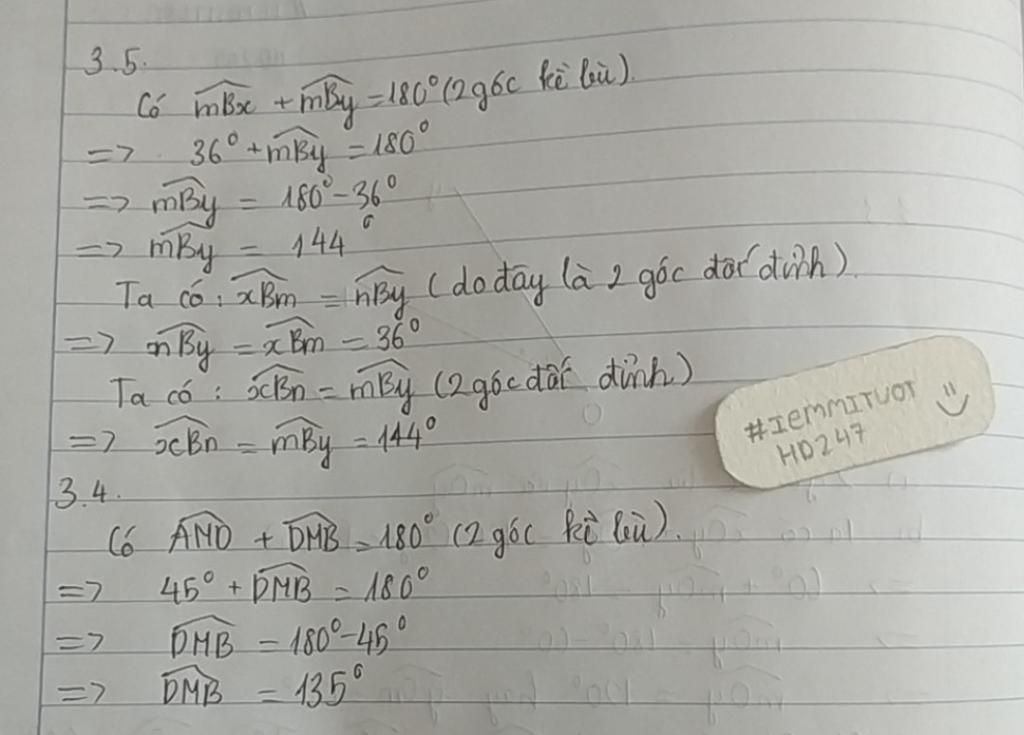 3.5.
Có mBx + mBy = 180° (2 góc kề bù).
=> 36° + mBy = 180°
=> mBy = 180° - 36°
=> mBy = 144°
Ta có: xBm = nBy (do đây là 2 góc đối đỉnh).
=> nBy = xBm = 36°
Ta có: xBn = mBy (2 góc đối đỉnh)
=> xBn = mBy = 144°
#IEMMITUOT
HD247
3.4.
Có AMD + DMB = 180° (2 góc kề bù).
=> 45° + DMB = 180°
=> DMB = 180° - 45°
=> DMB = 135°